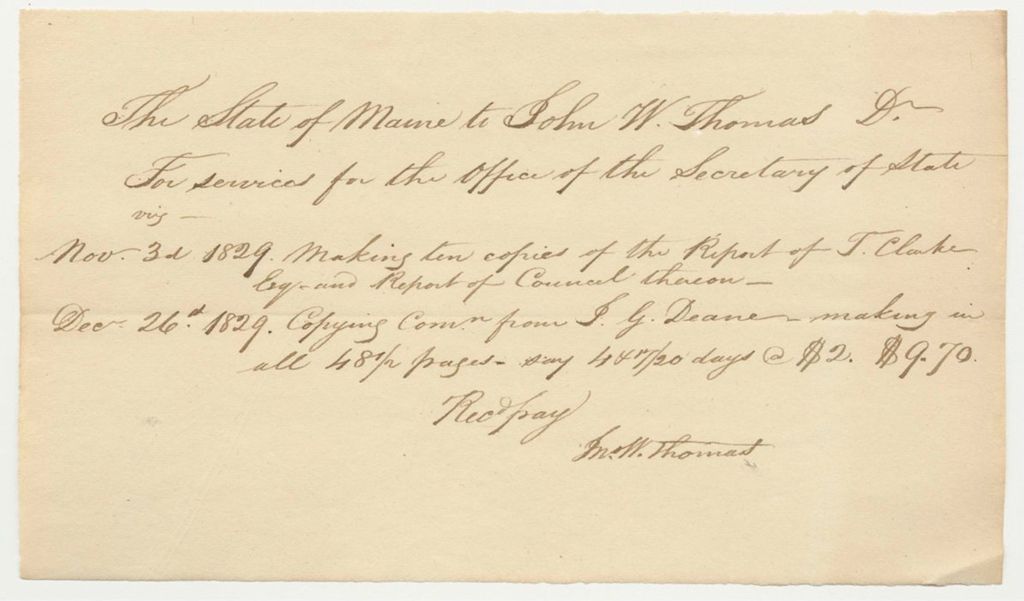 The State of Maine to John W. Thomas Dr
For services for the Office of the Secretary of State
viz —
Nov. 3d 1829. Making ten copies of the Report of T. Clarke
Esq- and Report of Council thereon —
Decr 26th 1829. Copying Comn from J. G. Deane — making in
all 48 1/2 pages — say 4 & 17/20 days @ $2. $9.70.
Recd pay
Jno W. Thomas